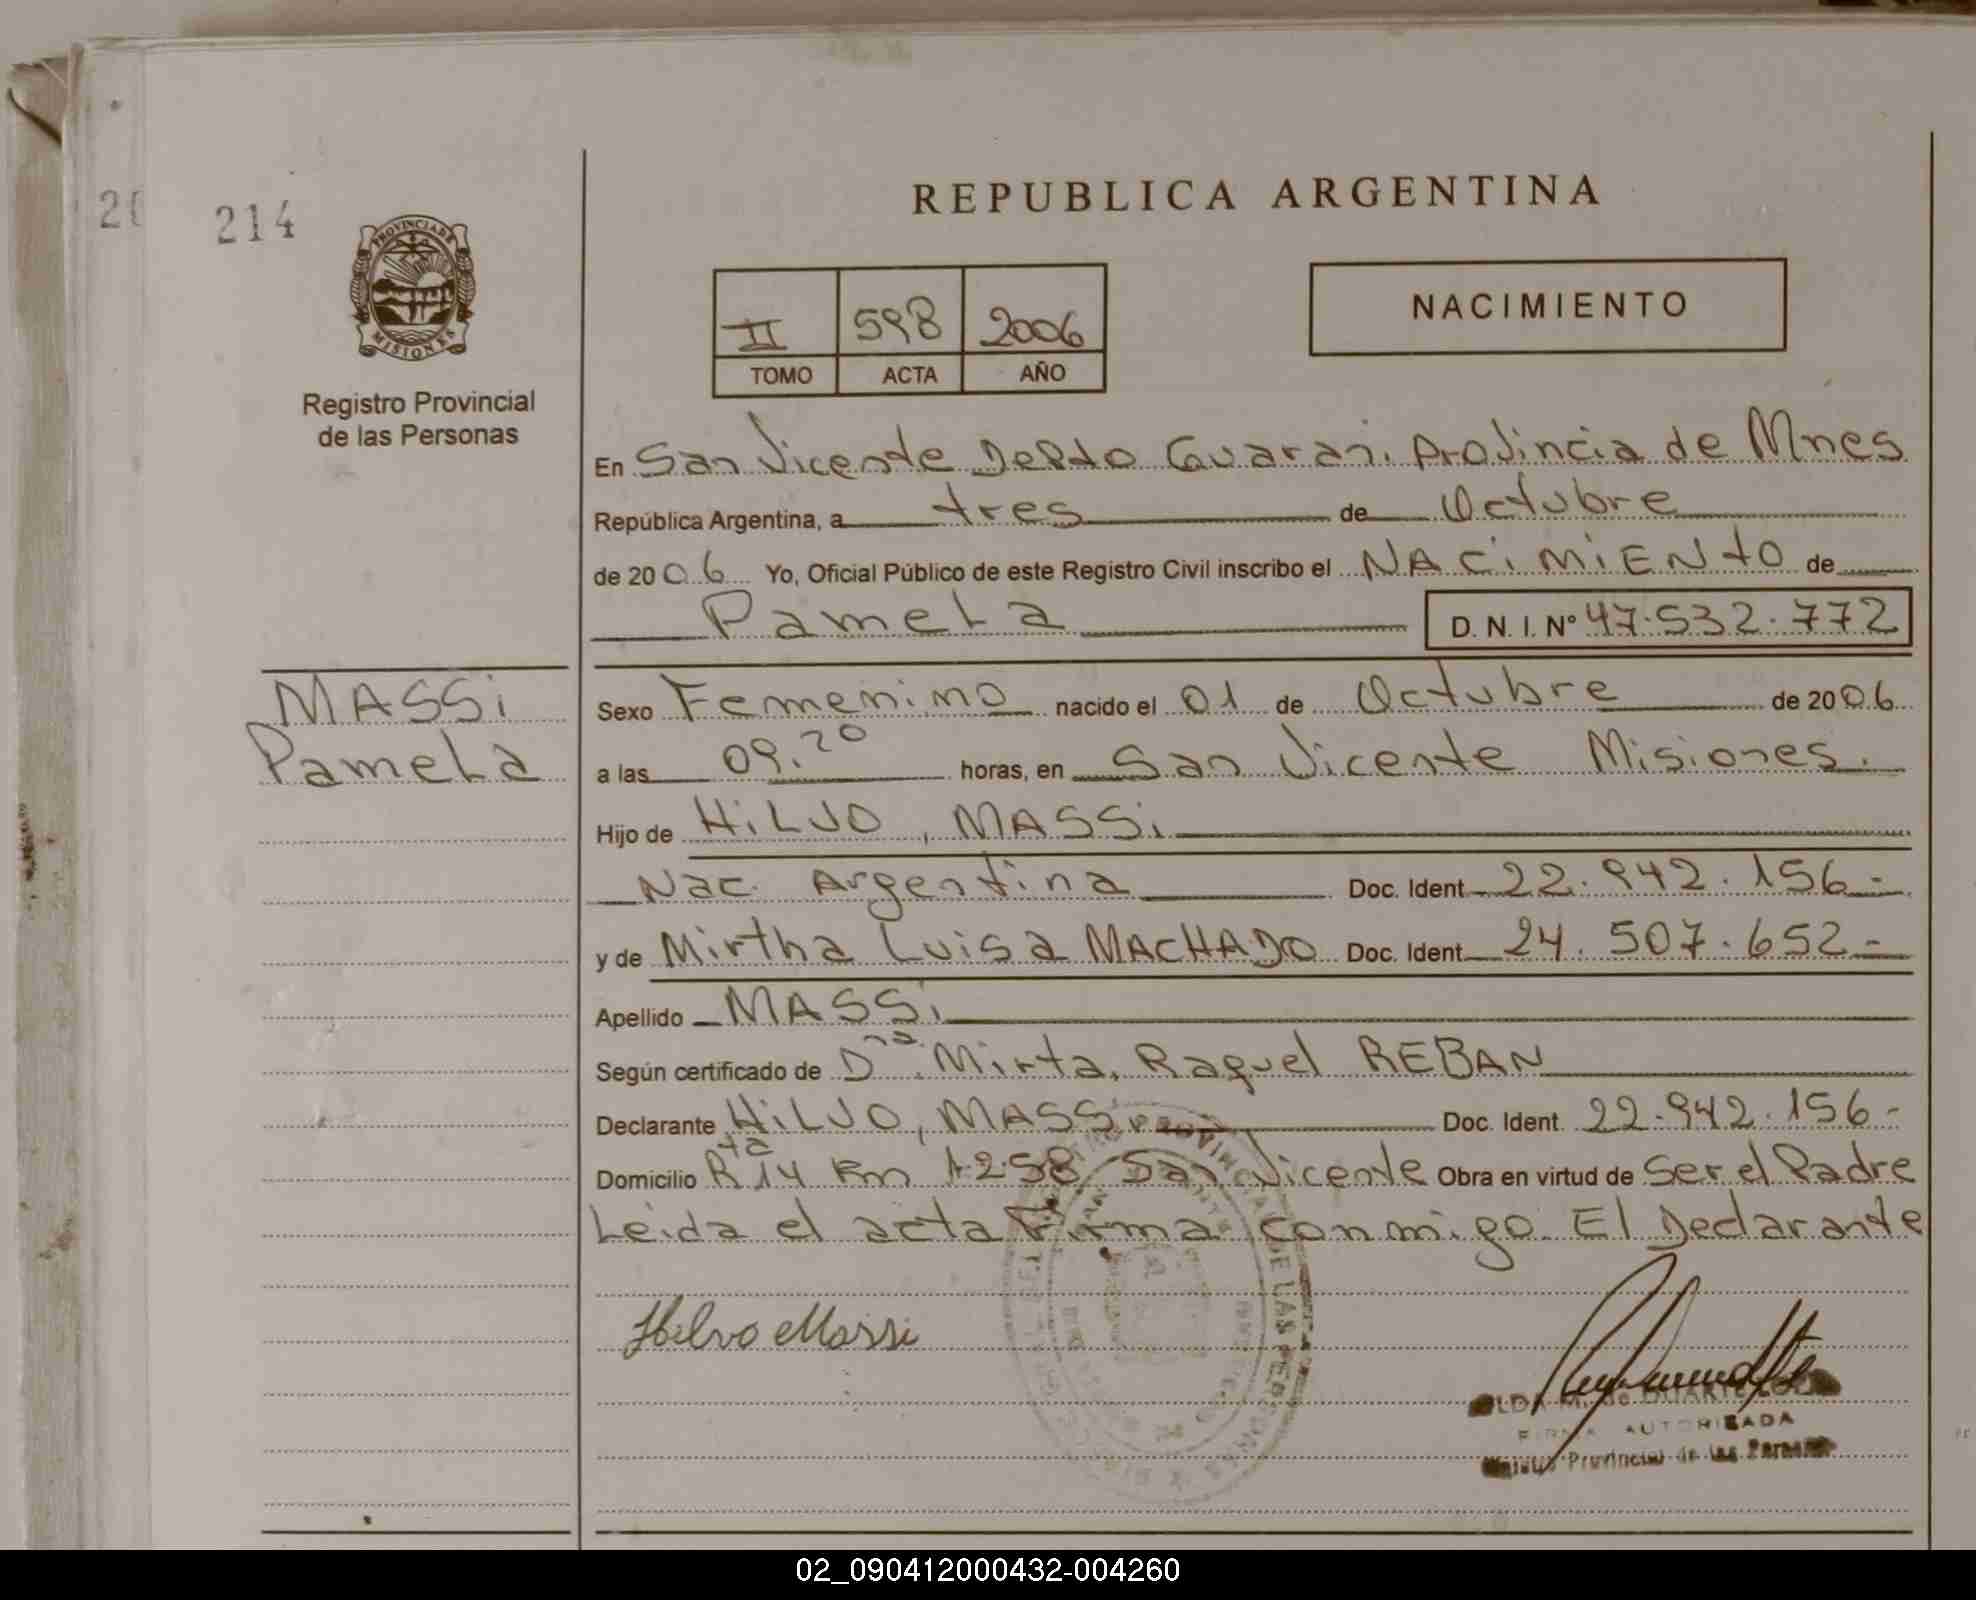 214
PROVINCIA DE
MISIONES
Registro Provincial
de las Personas
REPUBLICA ARGENTINA
II 598 2006
TOMO ACTA AÑO
NACIMIENTO
En San Vicente Depto Guarani Provincia de Mnes
República Argentina, a tres de Octubre
de 2006 Yo, Oficial Público de este Registro Civil inscribo el NACiMiENtO de
Pamela D. N. I. N° 47.532.772
MASSi
Pamela
Sexo Femenino nacido el 01 de Octubre de 2006
a las 09.20 horas, en San Vicente Misiones.
Hijo de HiLVO, MASSi
Nac. Argentina Doc. Ident 22.942.156-
y de Mirtha Luisa MACHADO Doc. Ident 24.507.652-
Apellido MASSi
Según certificado de Dña. Mirta, Raquel REBAN
Declarante HiLVO, MASSi Doc. Ident. 22.942.156-
Domicilio Rta 14 Km 1.258 San Vicente Obra en virtud de Ser el Padre
Leida el acta Firma conmigo. El Declarante
Hilvo Massi
FIRMA AUTORIZADA
Provincial de las
02_090412000432-004260